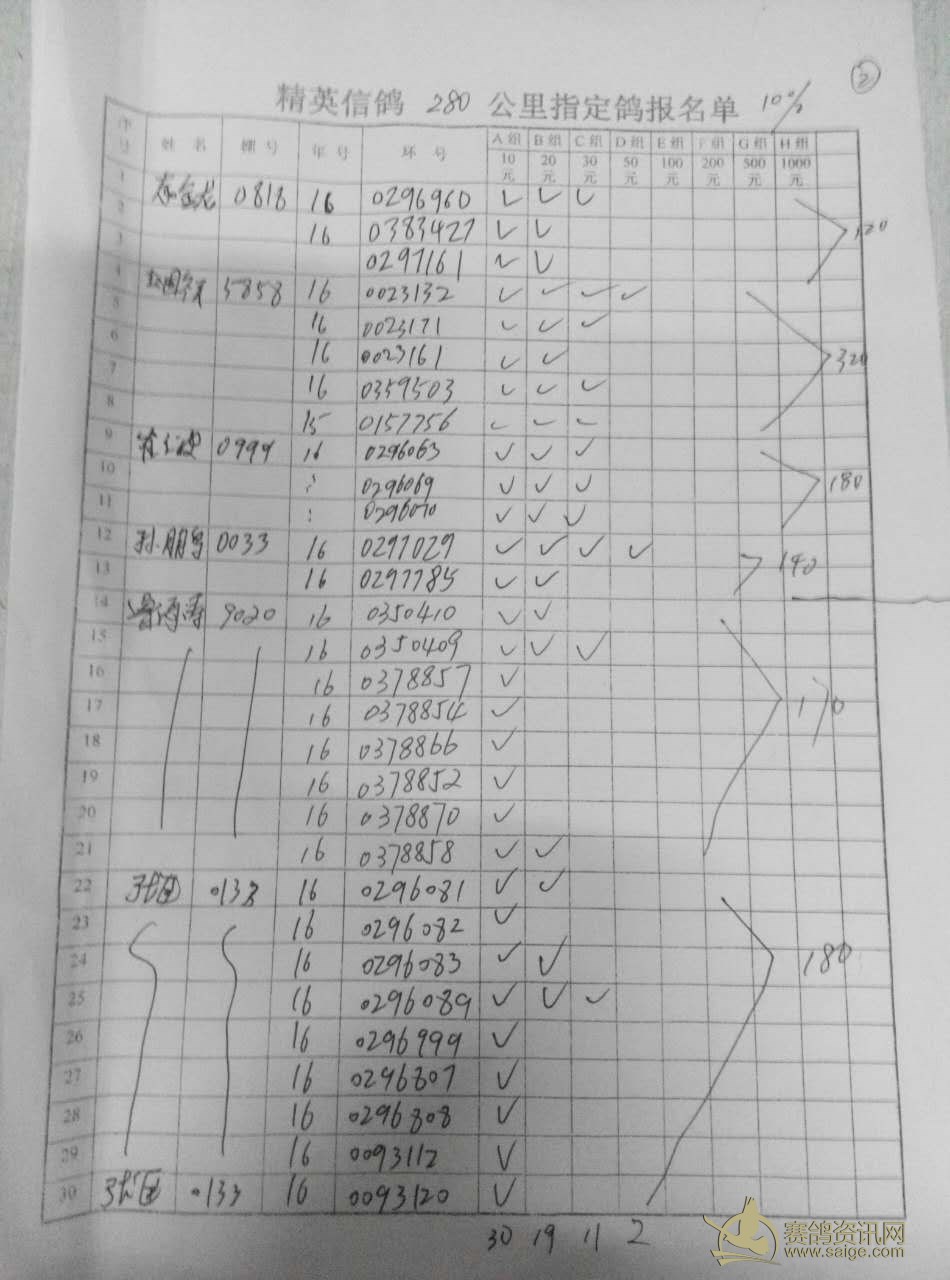 ②
精英信鸽 280 公里指定鸽报名单 10%
序号 姓名 棚号 年号 环号 A组 B组 C组 D组 E组 F组 G组 H组
10元 20元 30元 50元 100元 200元 500元 1000元
1 0818 16 0296960 ✓ ✓ ✓
2 16 0383427 ✓ ✓
3 0297161 ✓ ✓
4 5858 16 0023132 ✓ ✓ ✓ ✓
5 16 0023171 ✓ ✓ ✓
6 16 0023161 ✓ ✓
7 16 0359503 ✓ ✓ ✓
8 15 0157756 ✓ ✓ ✓ 320
9 0999 16 0296063 ✓ ✓ ✓
10 0296069 ✓ ✓ ✓ 180
11 0296070 ✓ ✓ ✓
12 0033 16 0297029 ✓ ✓ ✓ ✓
13 16 0297785 ✓ ✓ 140
14 9020 16 0350410 ✓ ✓
15 16 0350409 ✓ ✓ ✓
16 16 0378857 ✓
17 16 0378854 ✓ 170
18 16 0378866 ✓
19 16 0378852 ✓
20 16 0378870 ✓
21 16 0378858 ✓ ✓
22 0133 16 0296081 ✓ ✓
23 16 0296082 ✓
24 16 0296083 ✓ ✓ 180
25 16 0296089 ✓ ✓ ✓
26 16 0296999 ✓
27 16 0296807 ✓
28 16 0296808 ✓
29 16 0093112 ✓
30 0133 16 0093120 ✓
30 19 11 2
赛鸽资讯网
www.saige.com